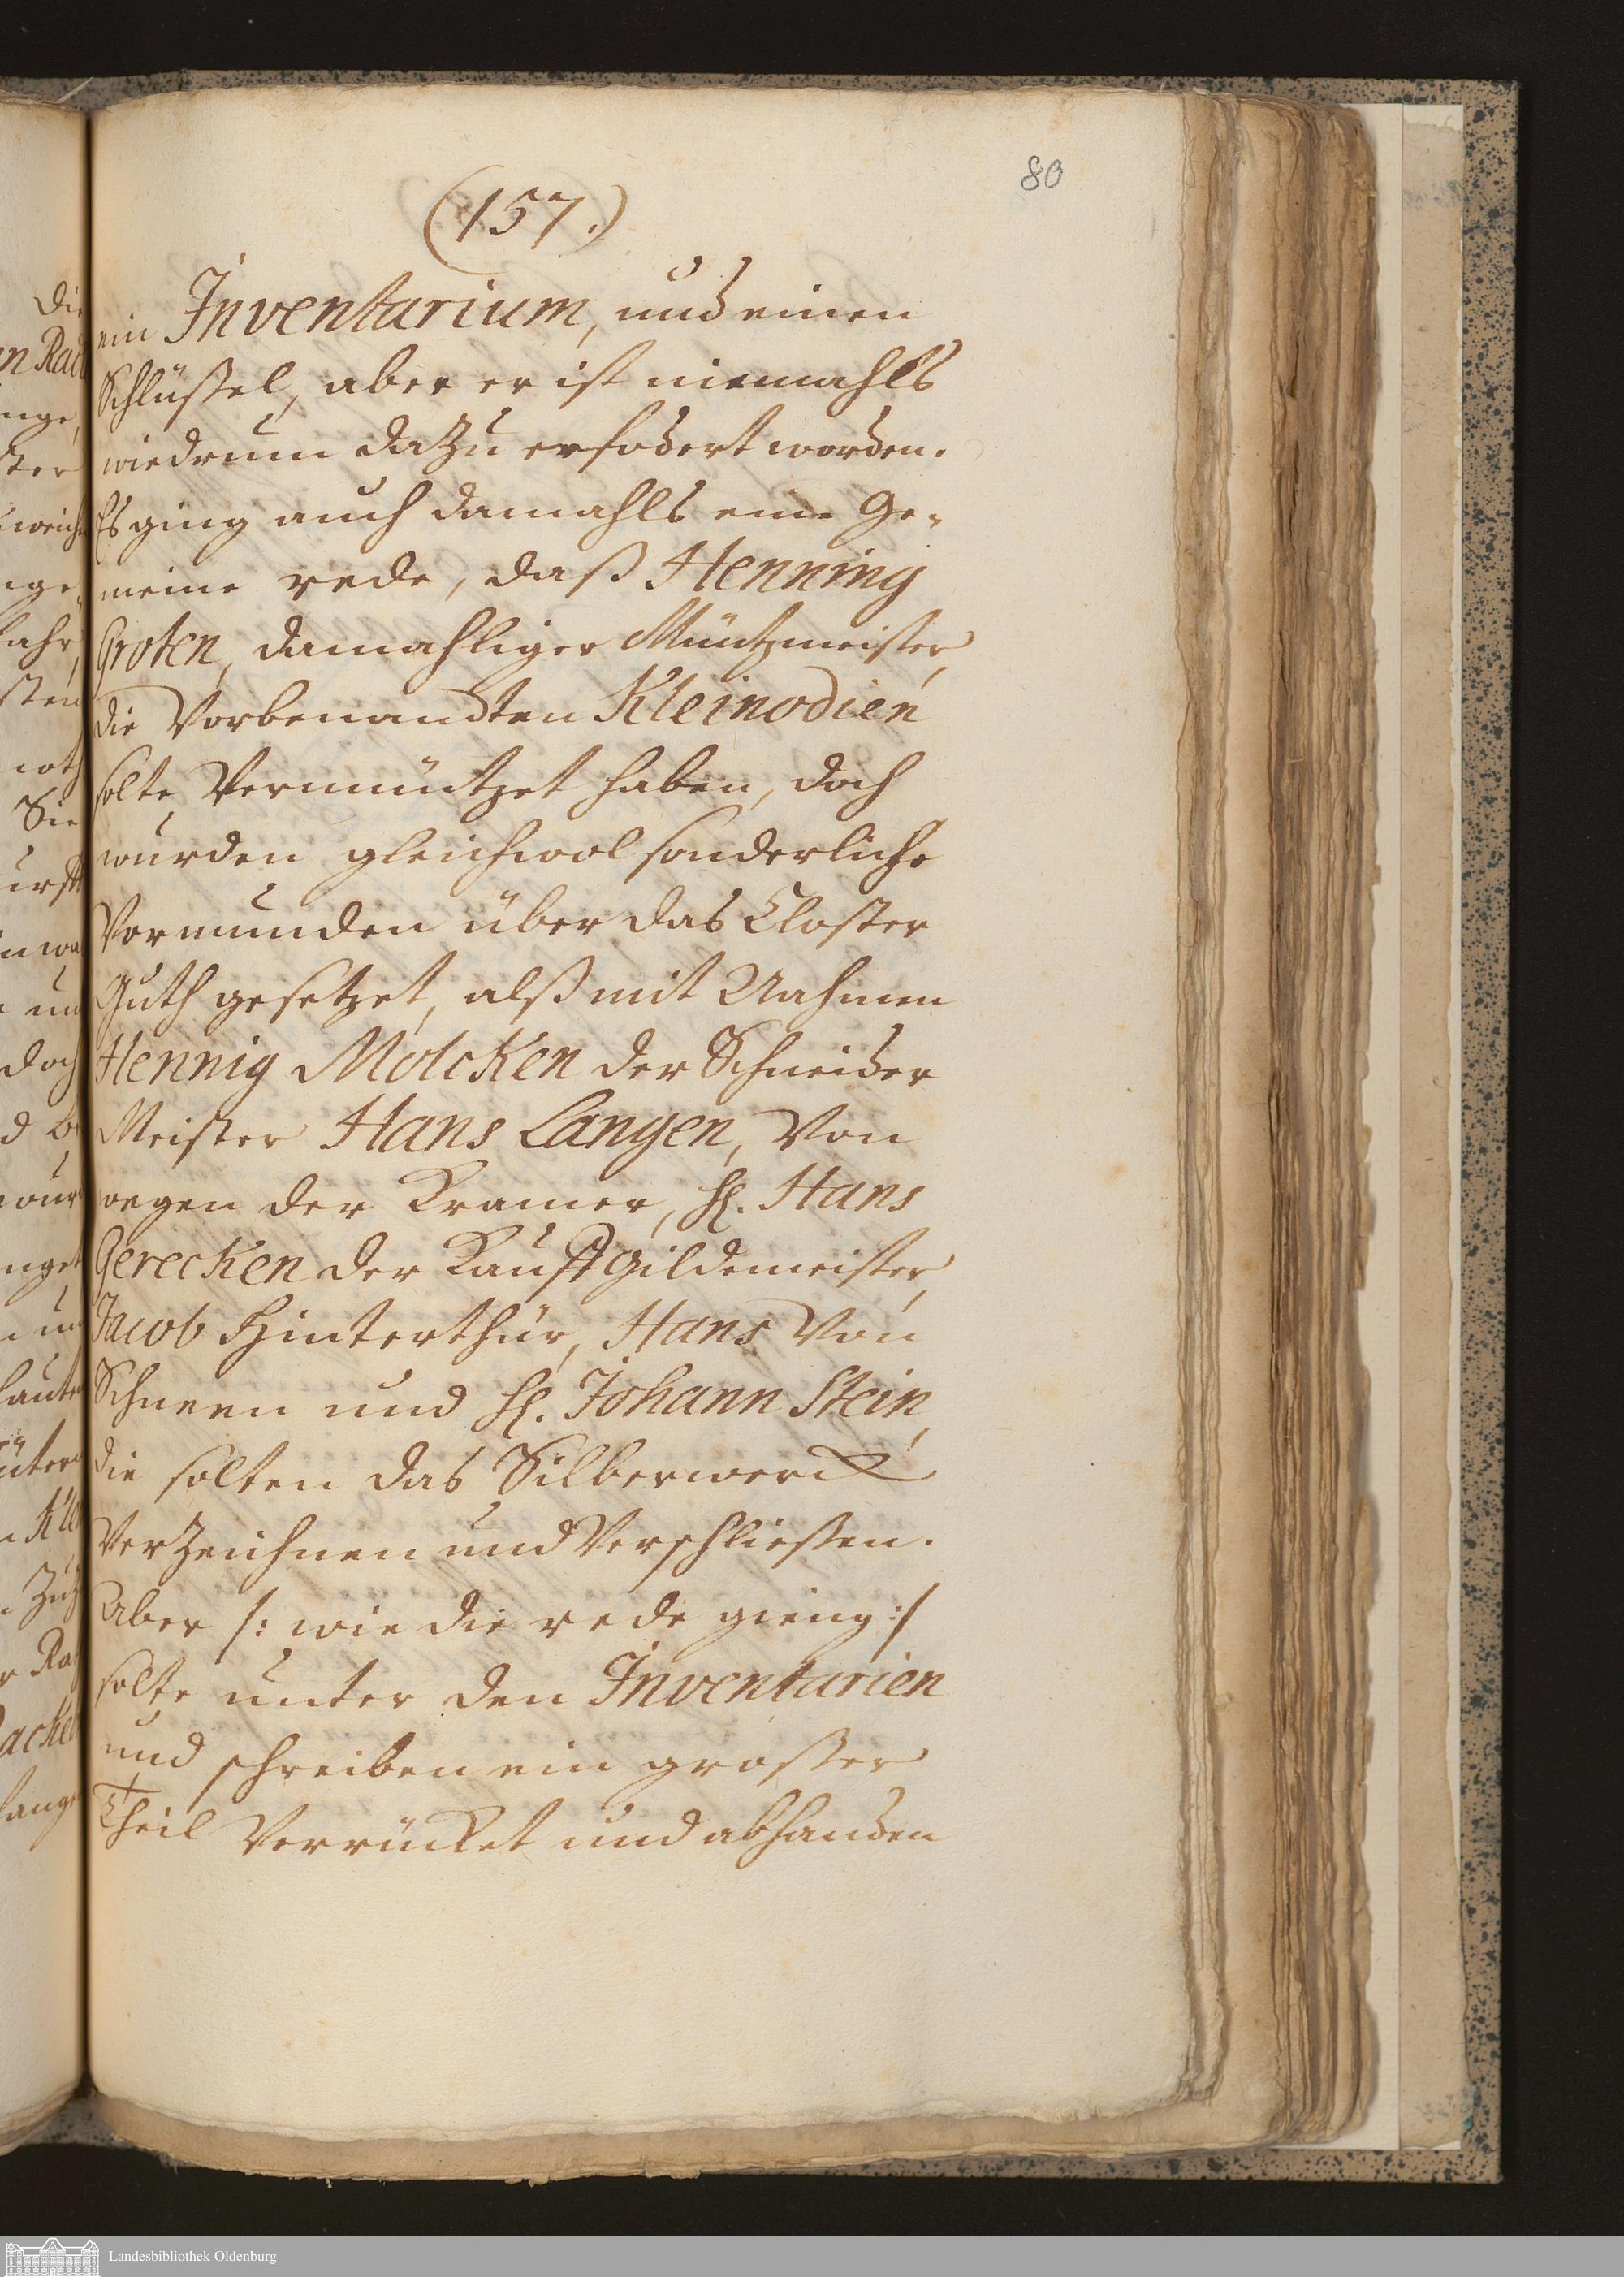 80
(157.)
ein Inventarium, und einen
Schlüßel, aber er ist niemahls
wiedrum dazu erfodert worden.
Es ging auch damahls eine Ge-
meine rede, daß Henning
Groten, damahliger Müntzmeister,
die Vorbenandten Kleinodien
solte Vermüntzet haben, doch
wurden gleichwol sonderliche
Vormunden über das Closter
Guth gesetzet, alß mit Nahmen
Hennig Molcken der Schneider
Meister Hans Langen, Von
wegen der Kramer, H. Hans
Gerecken der Kauff Gildemeister,
Jacob Hinterthür, Hans Von
Schneen und H. Johann Stein,
die solten das Silberwerck
Verzeichnen und Verschließen.
Aber /: wie die rede gieng :/
solte unter den Inventarien
und schreiben ein großer
Theil Verrücket und abhanden
Landesbibliothek Oldenburg